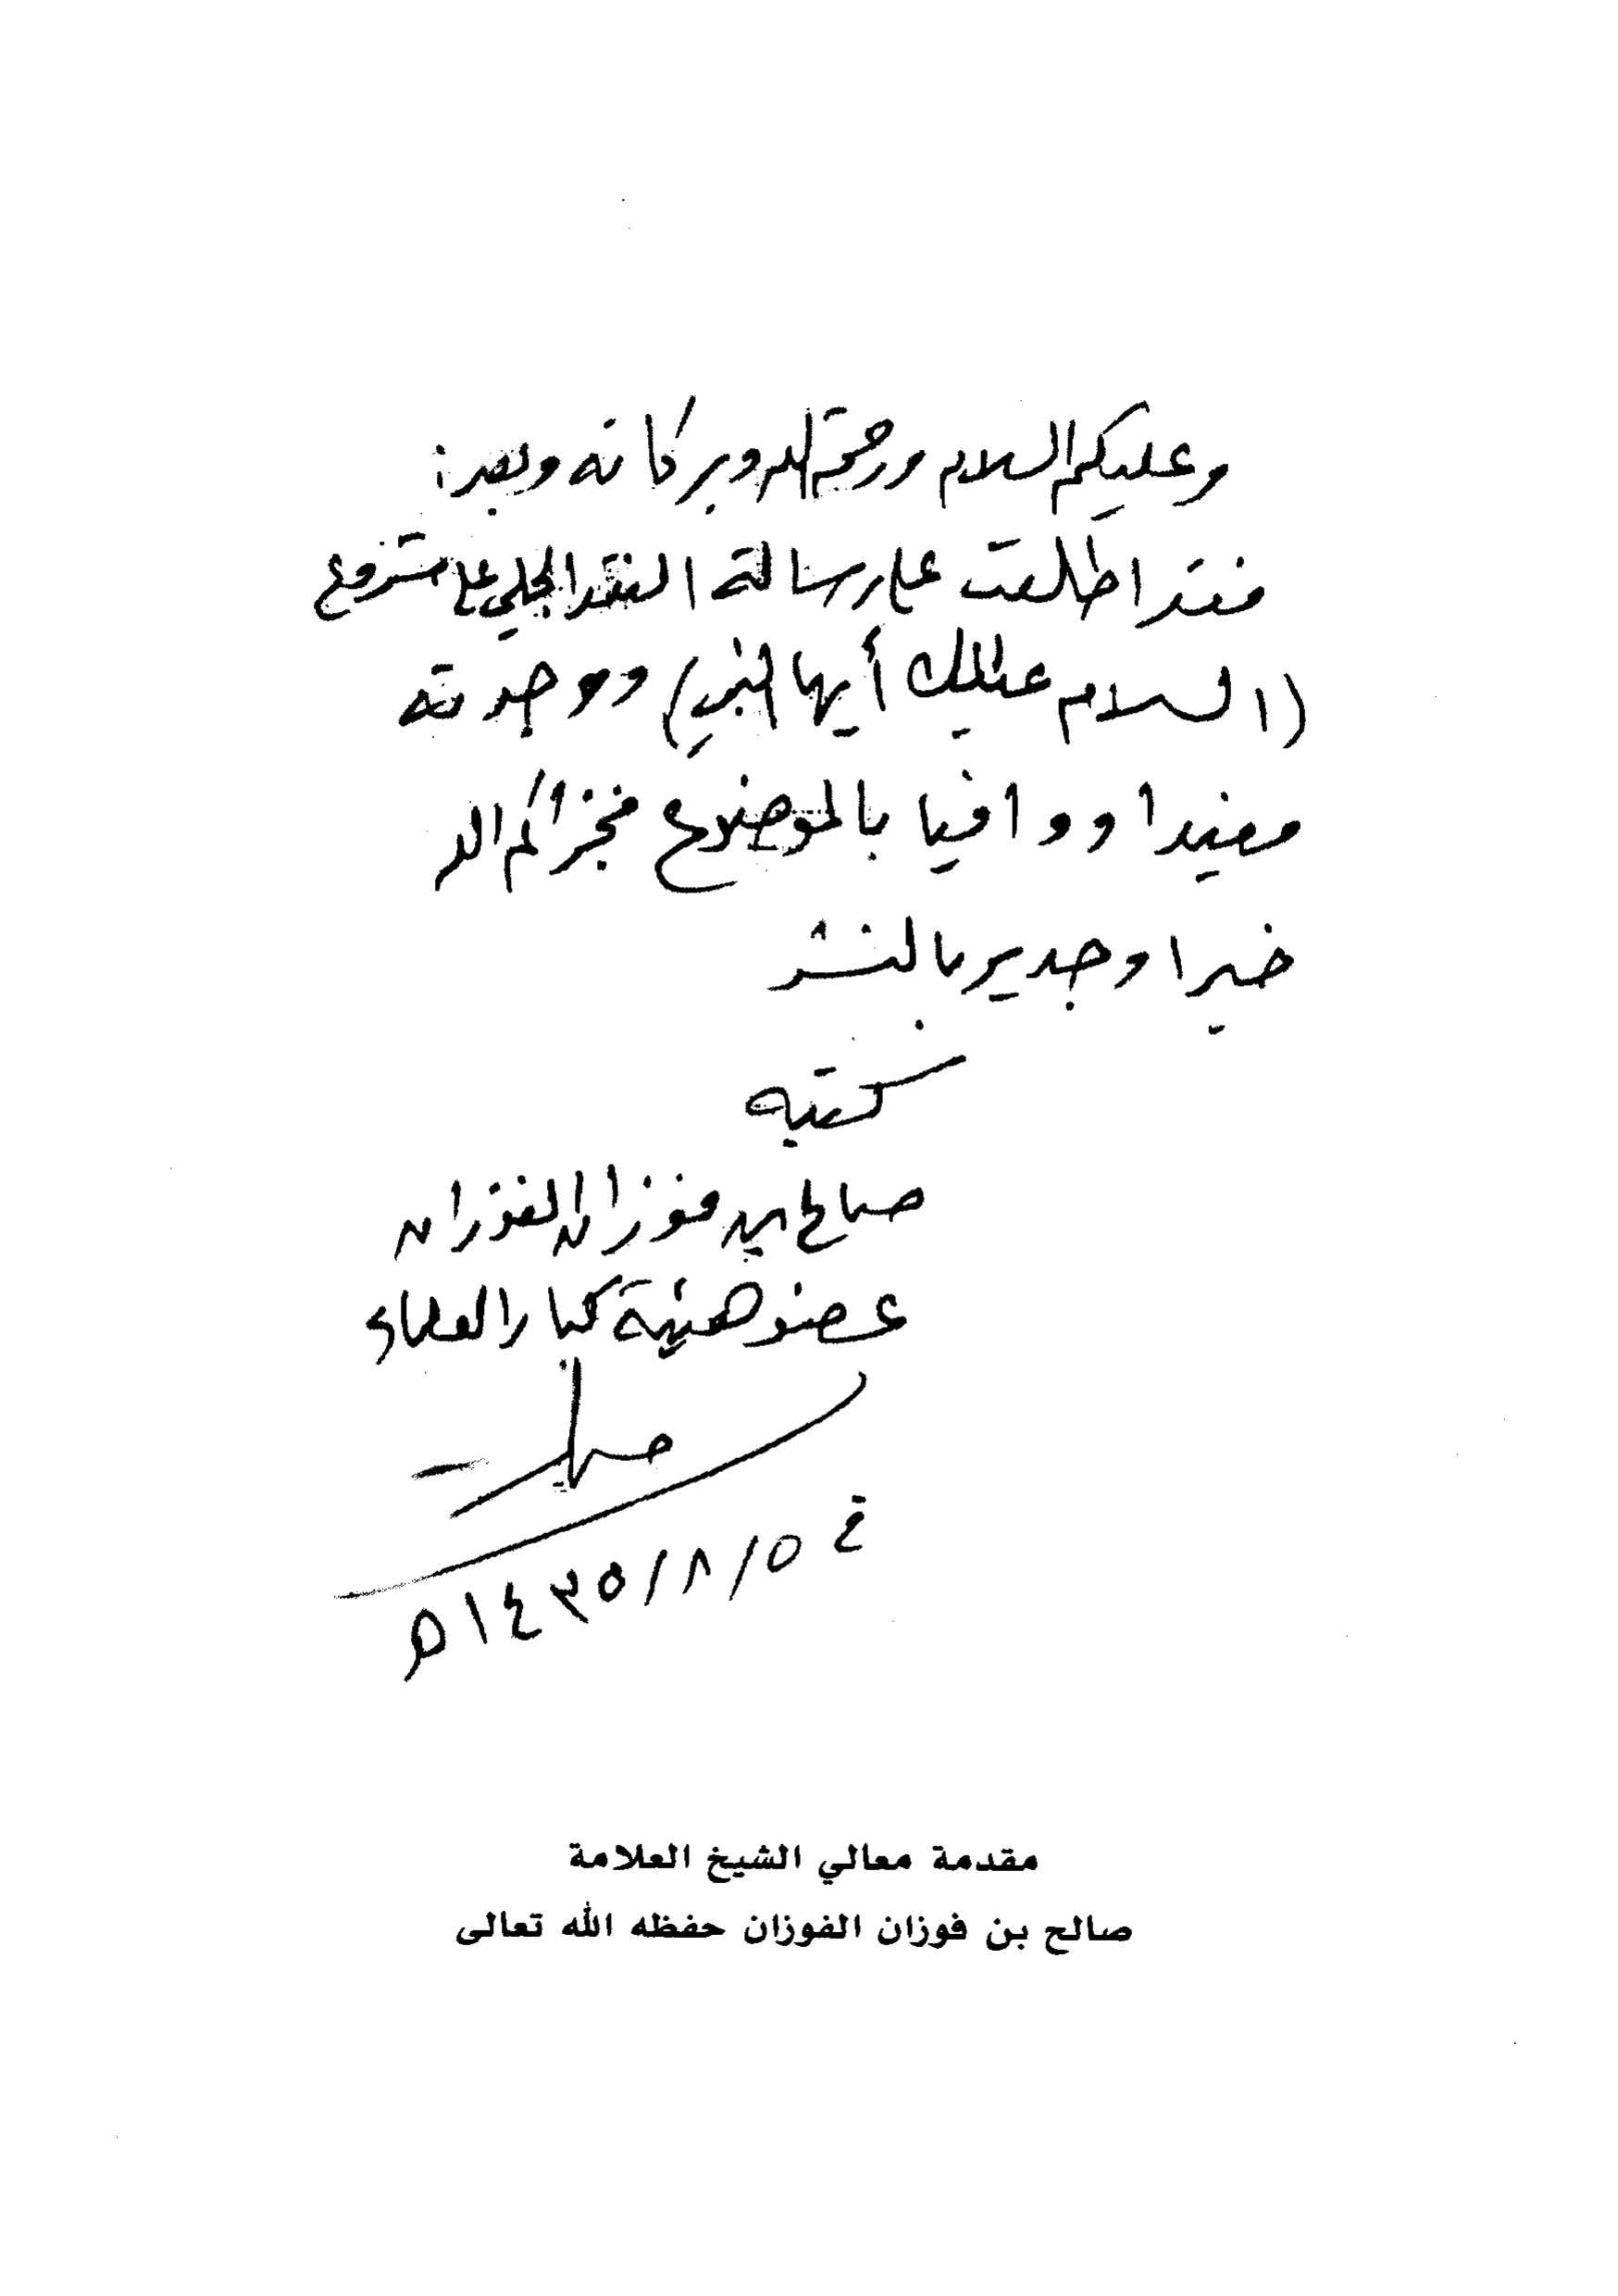 وعليكم السلام ورحمة الله وبركاته وبعد:
فقد اطلعت على رسالة النقد الجلي على مشروع
(السلام عليك أيها النبي) ووجدته
مفيدا ووافيا بالموضوع فجزاكم الله
خيرا وجدير بالنشر
كتبه
صالح بن فوزان الفوزان
عضو هيئة كبار العلماء
في ٥/٨/١٤٣٥ه
مقدمة معالي الشيخ العلامة
صالح بن فوزان الفوزان حفظه الله تعالى